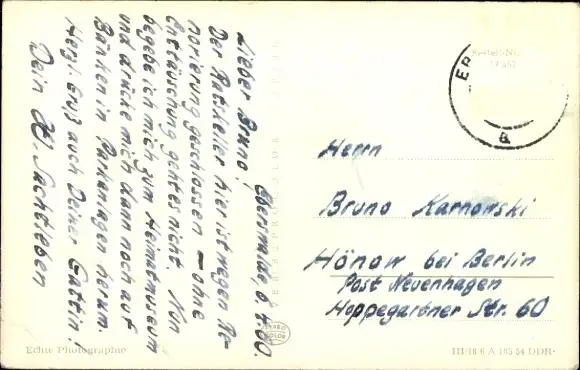 Lieber Bruno!
Eberswalde, 6.4.60.
Der Ratskeller hier ist wegen Re-
novierung geschlossen – ohne
Enttäuschung geht es nicht. Nun
begebe ich mich zum Heimatmuseum
und drücke mich dann noch auf
Bänken in Parkanlagen herum.
Herzl. Gruß auch Deiner Gattin!
Dein W. Sachtleben
Herrn
Bruno Karnowski
Hönow bei Berlin
Post Neuenhagen
Hoppegartner Str. 60
Echte Photographie
III/18 6 A 185 54 DDR